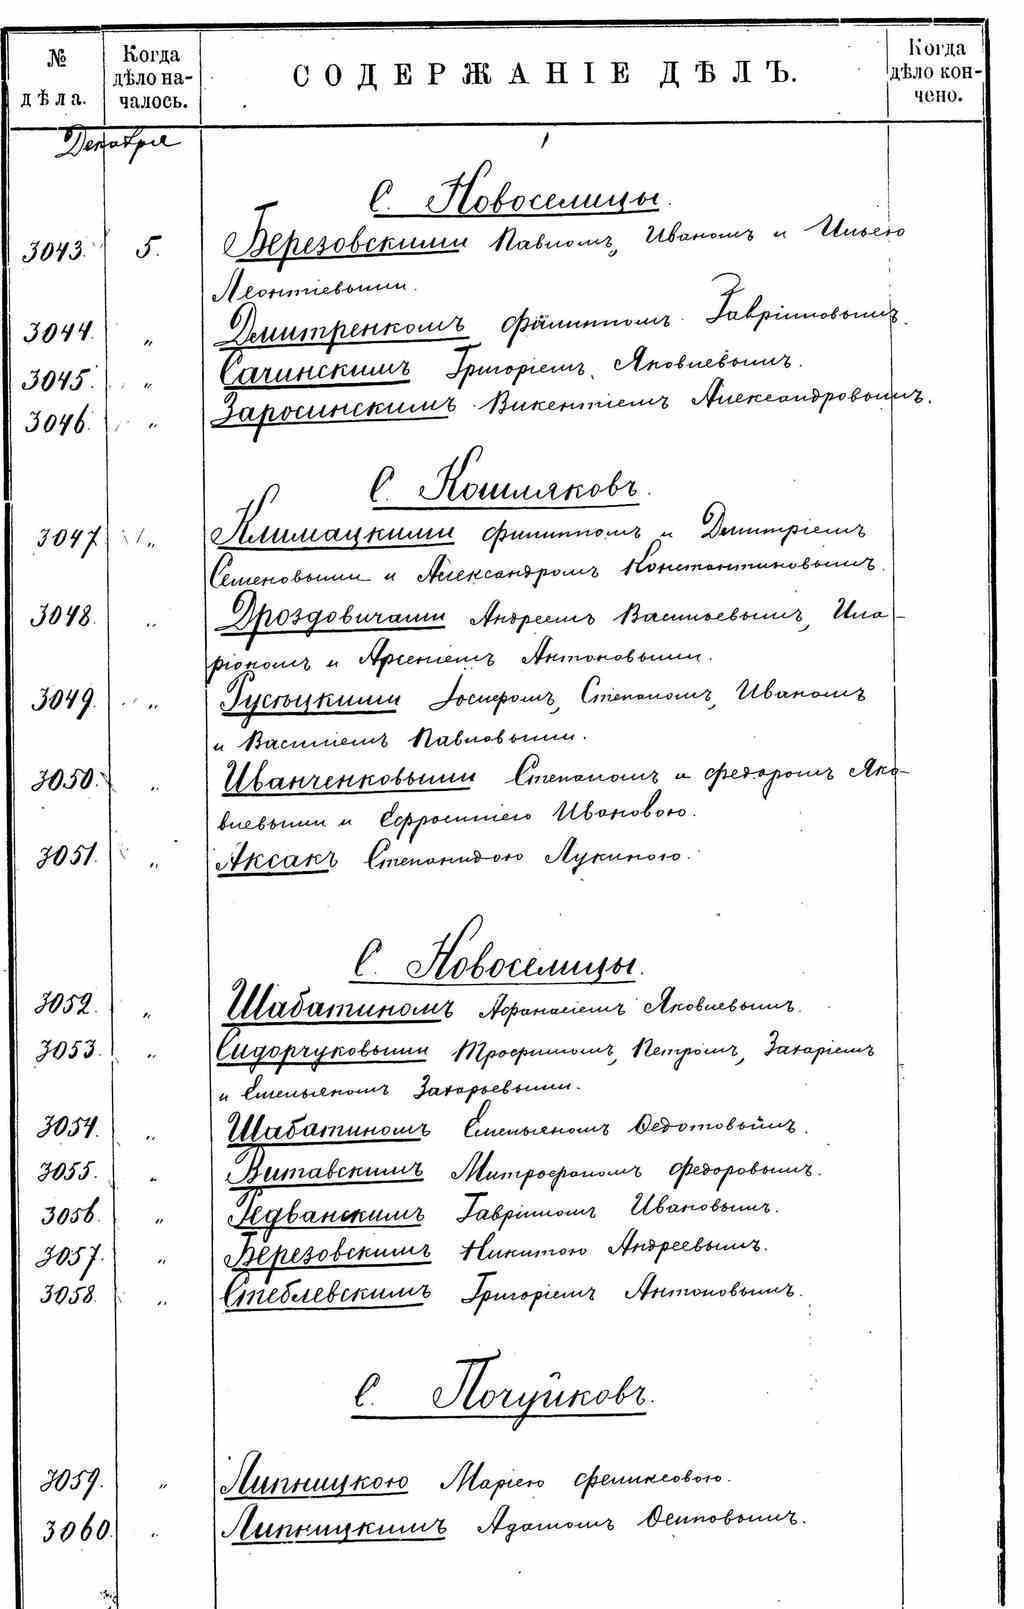 № дѣла. Когда дѣло началось. СОДЕРЖАНІЕ ДѢЛЪ. Когда дѣло кончено.
Декабря
С. Новоселицы.
3043. 5. Березовскими Павломъ, Иваномъ и Ильею
Леонтіевыми.
3044. „ Дмитренкомъ Филиппомъ Гавріиловымъ.
3045. „ Сачинскимъ Григоріемъ Яковлевымъ.
3046. „ Заросинскимъ Викентіемъ Александровымъ.
С. Кошляковъ.
3047. „ Климацкими Филиппомъ и Дмитріемъ
Семеновыми и Александромъ Константиновымъ.
3048. „ Дроздовичами Андреемъ Васильевымъ, Ила-
ріономъ и Арсеніемъ Антоновыми.
3049. „ Осипомъ, Степаномъ, Иваномъ
и Василіемъ Павловыми.
3050. „ Иванченковыми Степаномъ и Федоромъ Яко-
влевыми и Ефросиніею Ивановою.
3051. „ Аксакъ Степанидою Лукиною.
С. Новоселицы.
3052. „ Шабатиномъ Афанасіемъ Яковлевымъ.
3053. „ Сидорчуковыми Трофимомъ, Петромъ, Захаріемъ
и Емельяномъ Захарьевыми.
3054. „ Шабатиномъ Емельяномъ Федотовымъ.
3055. „ Витавскимъ Митрофаномъ Федоровымъ.
3056. „ Редванскимъ Гавріиломъ Ивановымъ.
3057. „ Березовскимъ Никитою Андреевымъ.
3058. „ Стеблевскимъ Григоріемъ Антоновымъ.
С. Почуйковъ.
3059. „ Липницкою Маріею Феликсовою.
3060. „ Липницкимъ Адамомъ Осиповымъ.